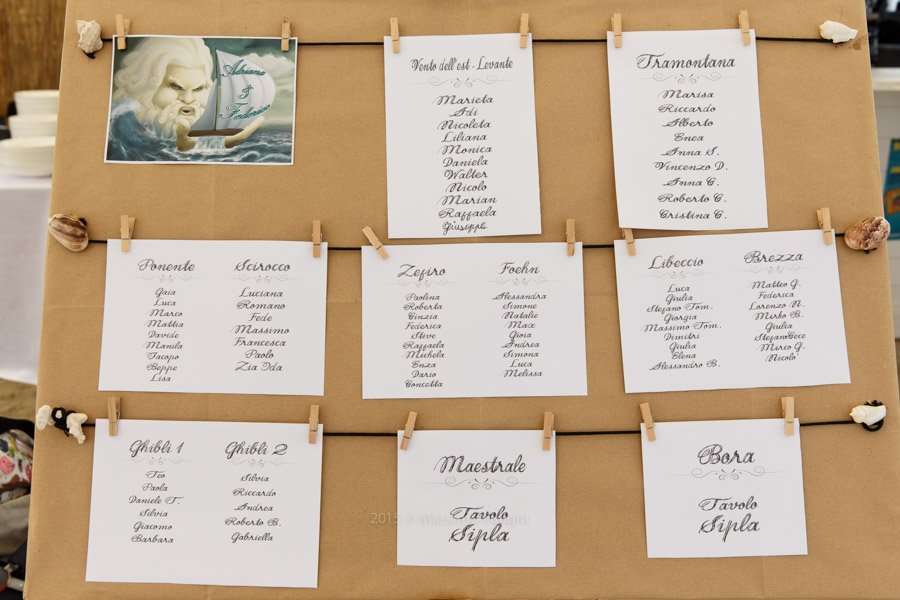 Adriana
&
Federico
Vento dell'est - Levante
Marieta
Adi
Nicoleta
Liliana
Monica
Daniela
Walter
Nicolo
Marian
Raffaela
Giuseppe
Tramontana
Marisa
Riccardo
Alberto
Enea
Anna S.
Vincenzo D.
Anna C.
Roberto C.
Cristina C.
Ponente
Gaia
Luca
Marco
Mattia
Davide
Manila
Jacopo
Beppe
Lisa
Scirocco
Luciana
Romano
Fede
Massimo
Francesca
Paolo
Zia Ida
Zefiro
Paolina
Roberta
Cinzia
Federica
Steve
Raffaela
Michela
Enza
Dario
Concetta
Foehn
Alessandra
Simone
Natalie
Max
Gioia
Andrea
Simona
Luca
Melissa
Libeccio
Luca
Giulia
Stefano Tom.
Giorgia
Massimo Tom.
Dimitri
Giulia
Elena
Alessandro B.
Brezza
Matteo G.
Federica
Lorenzo N.
Mirko B.
Giulia
StefanoCece
Mirco G.
Nicolo'
Ghibli 1
Teo
Paola
Daniele T.
Silvia
Giacomo
Barbara
Ghibli 2
Silvia
Riccardo
Andrea
Roberto B.
Gabriella
Maestrale
Tavolo
Sipla
Bora
Tavolo
Sipla
2015 ©